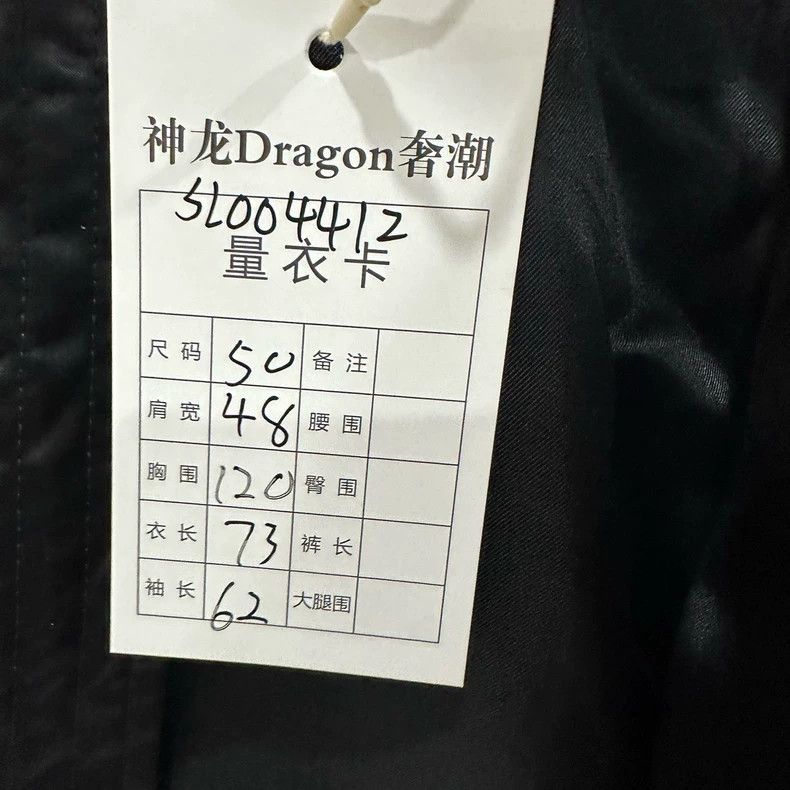 神龙Dragon奢潮
SL004412
量衣卡
尺码 50 备注
肩宽 48 腰围
胸围 120 臀围
衣长 73 裤长
袖长 62 大腿围